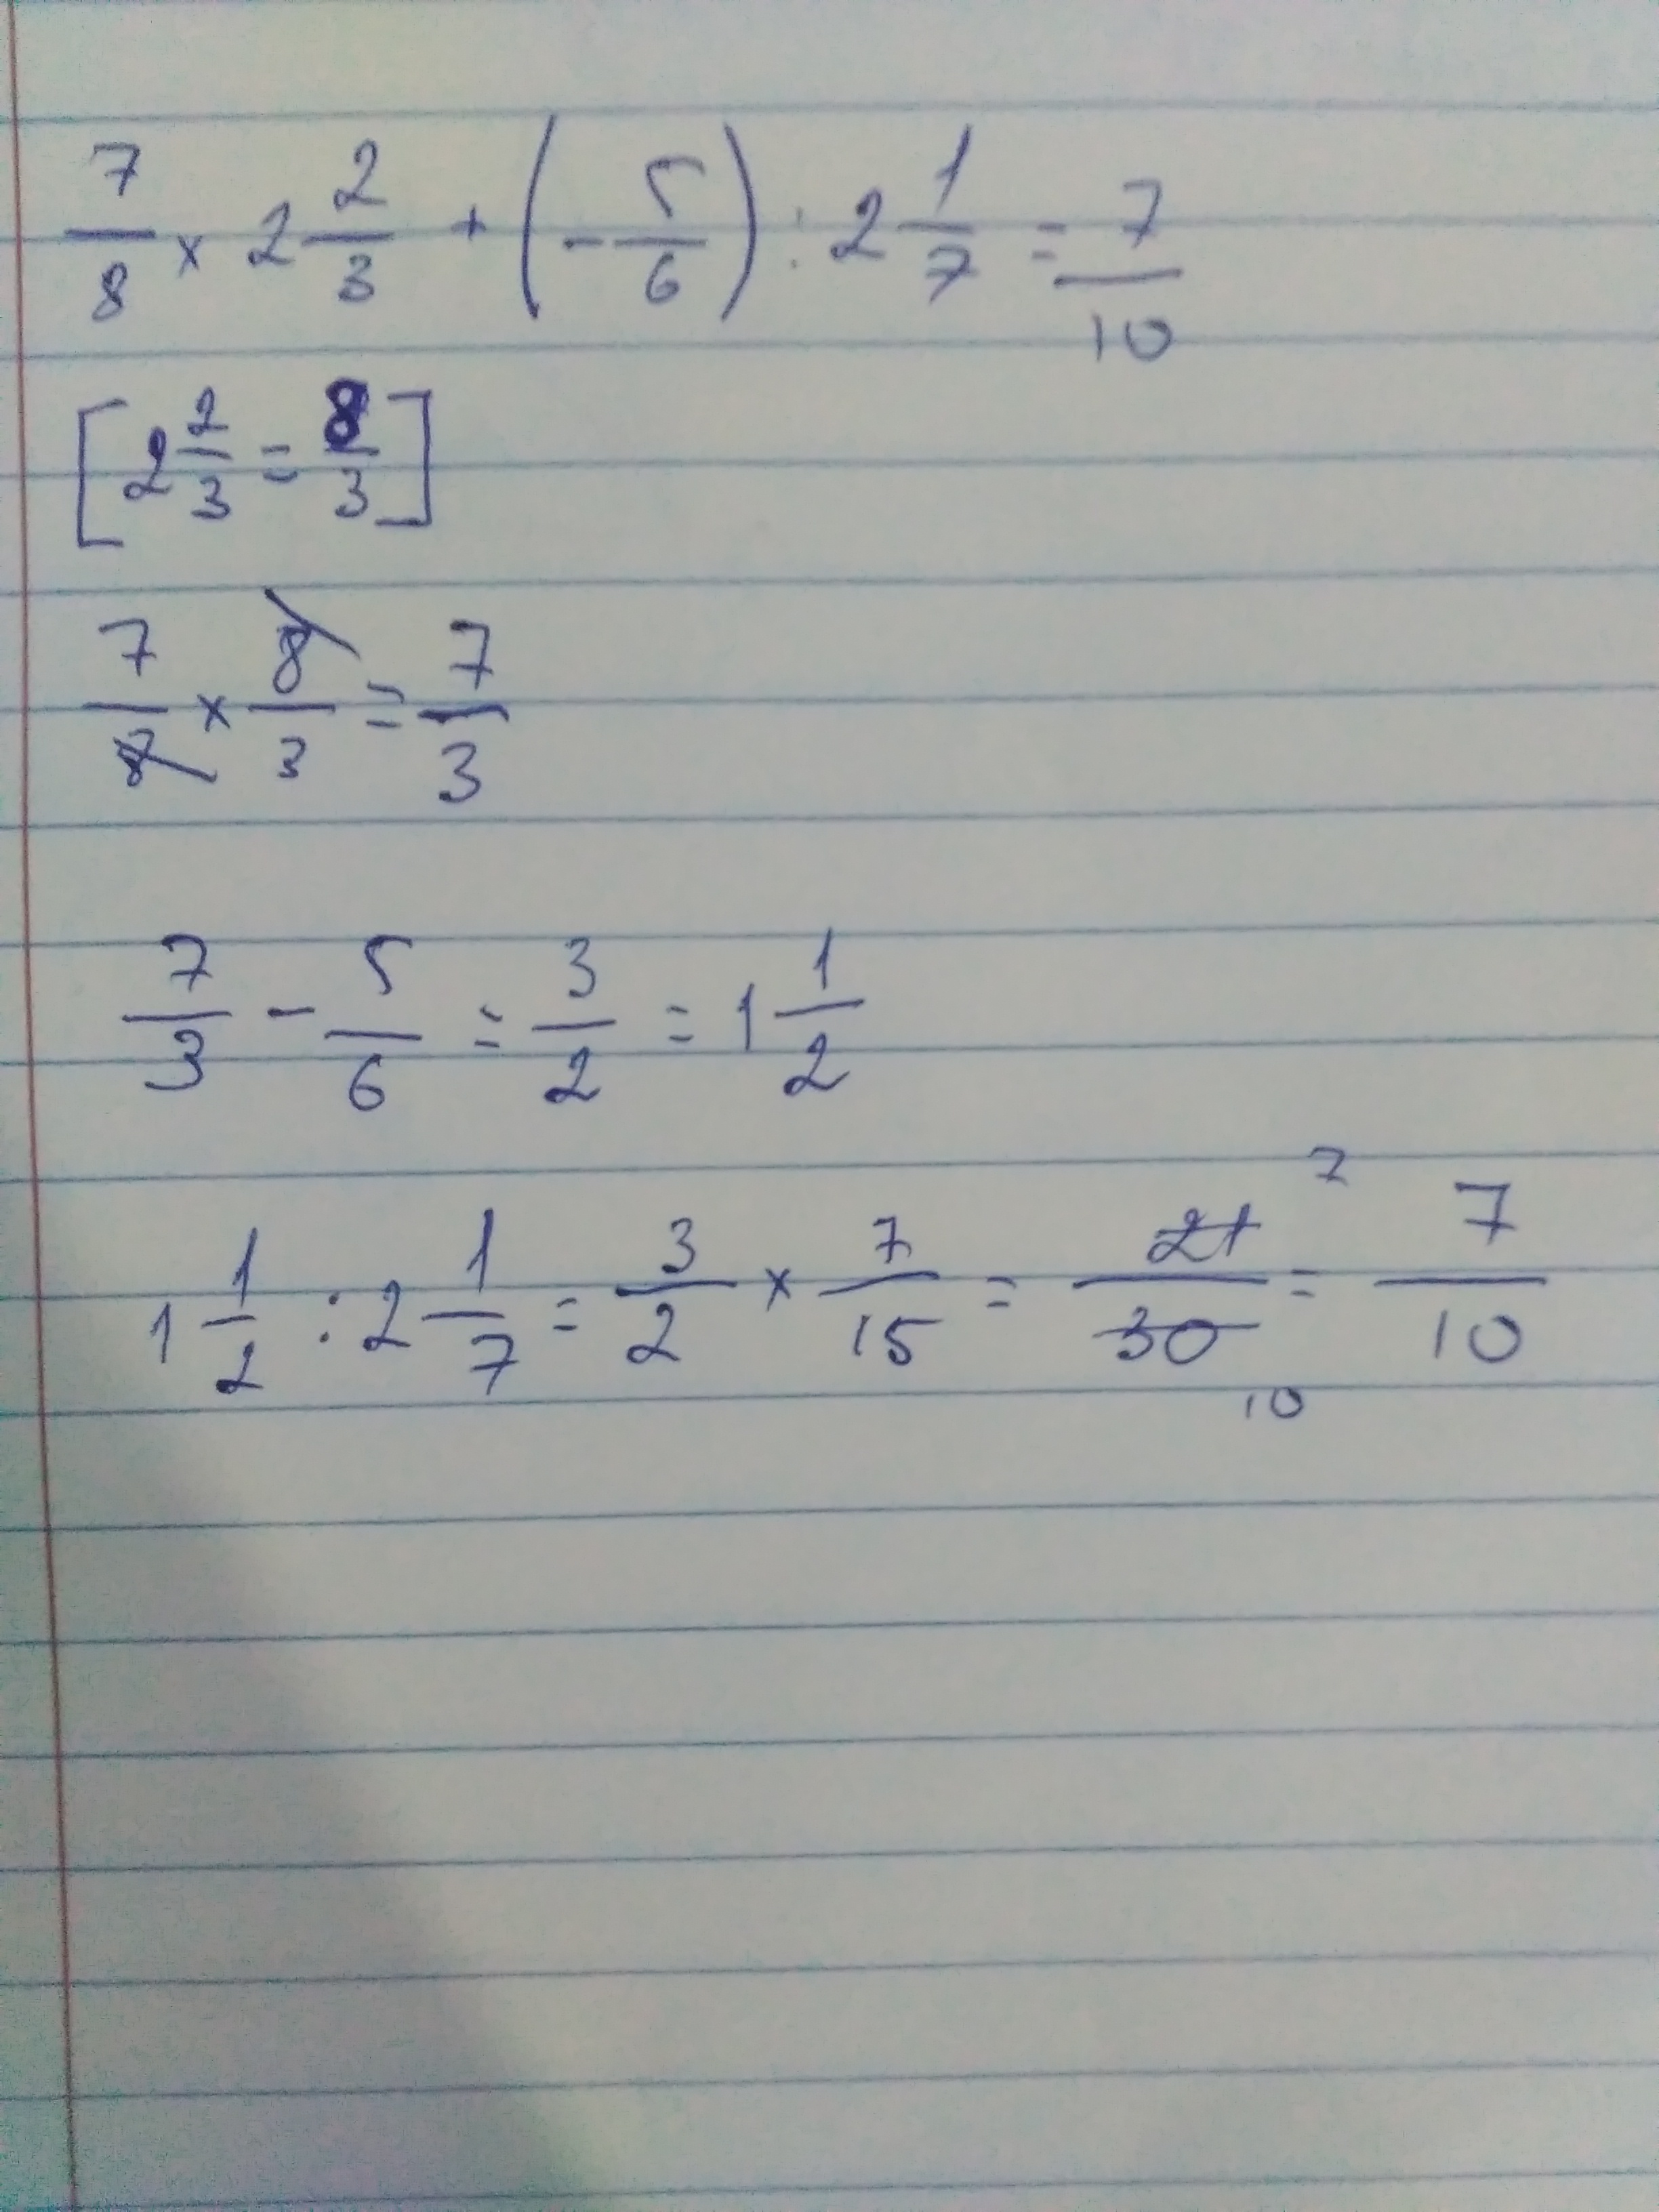 7/8 × 2 2/3 + (- 5/6) : 2 1/7 = 7/10
[2 2/3 = 8/3]
7/8 × 8/3 = 7/3
7/3 - 5/6 = 3/2 = 1 1/2
1 1/2 : 2 1/7 = 3/2 × 7/15 = 21/30 7 10 = 7/10